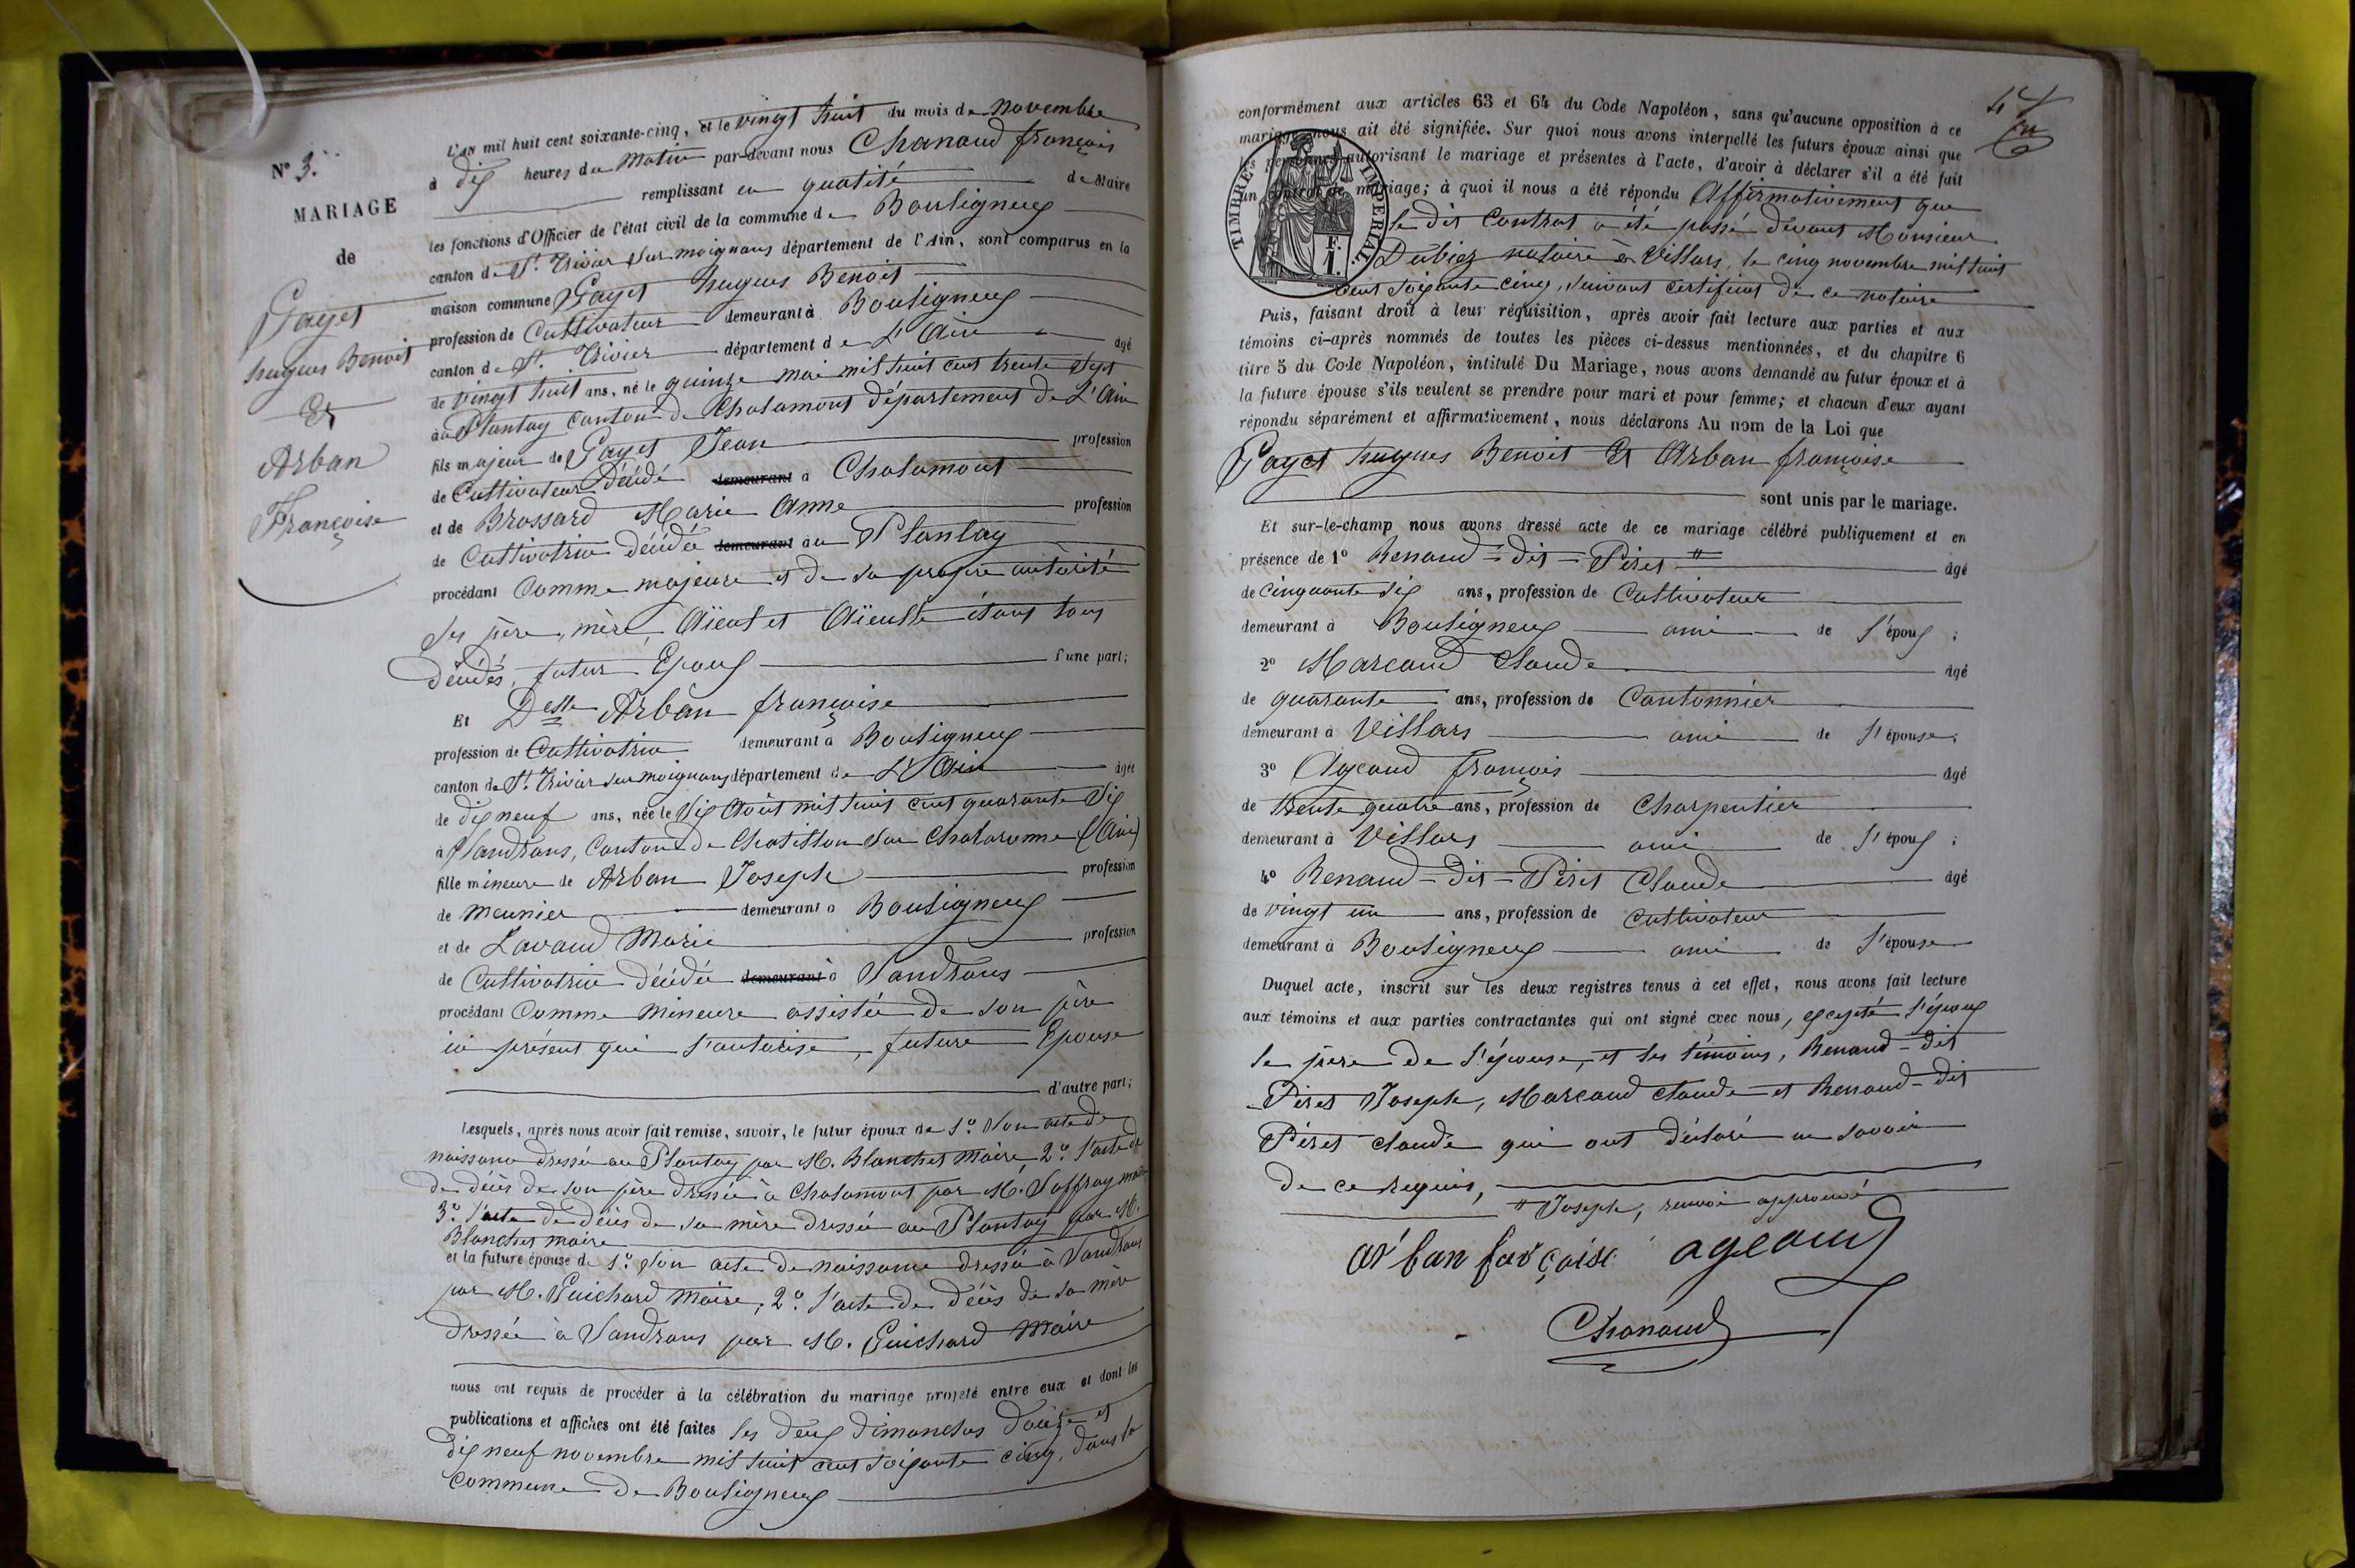 N° 3.
MARIAGE
de
Payet
hugues Benoit
Et
Arban
Françoise
L'an mil huit cent soixante-cinq, et le vingt huit du mois de novembre
à dix heures du Matin par-devant nous Chanaud françois
remplissant en qualité de Maire
les fonctions d'Officier de l'état civil de la commune de Bouligneux
canton de St. Trivier sur moignans département de l'Ain, sont comparus en la
maison commune Payet hugues Benoit
profession de Cultivateur demeurant à Bouligneux
canton de St. Trivier département de L'Ain âgé
de vingt huit ans, né le quinze mai mil huit cent trente sept
à au Plantay canton de Chalamont département de L'Ain
fils majeur de Payet Jean profession
de Cultivateur décédé demeurant à Chalamont
et de Brossard Marie Anne profession
de Cultivatrice décédée demeurant à au Plantay
procédant Comme majeure et de sa propre autorité
ses père, mère, Aïeul et Aïeulle étant tous
décédés, futur Epoux d'une part;
Et Delle Arban françoise
profession de Cultivatrice demeurant à Bouligneux
canton de St. Trivier sur moignans département de L'Ain âgée
de dix neuf ans, née le Six Août mil huit cent quarante Six
à Sandrans, Canton de Chatillon sur Chalaronne (Ain)
fille mineure de Arban Joseph profession
de meunier demeurant à Bouligneux
et de Lavaud Marie profession
de Cultivatrice décédée demeurant à Sandrans
procédant Comme mineure assistée de son père
ici présent qui l'autorise, future Epouse
d'autre part;
Lesquels, après nous avoir fait remise, savoir, le futur époux de 1° Son acte de
naissance dressé au Plantay par M. Blanchet Maire, 2° l'acte de
de décès de son père dressé à Chalamont par M. Saffray maire
3° l'acte de décès de sa mère dressé au Plantay par M.
Blanchet maire
et la future épouse de 1° Son acte de naissance dressé à Sandrans
par M. Guichard Maire, 2° l'acte de décès de sa mère
dressé à Sandrans par M. Guichard Maire
nous ont requis de procéder à la célébration du mariage projeté entre eux et dont les
publications et affiches ont été faites les deux dimanches douze et
dix neuf novembre mil huit cent soixante cinq, dans la
commune de Bouligneux
conformément aux articles 63 et 64 du Code Napoléon, sans qu'aucune opposition à ce
mariage nous ait été signifiée. Sur quoi nous avons interpellé les futurs époux ainsi que
les personnes autorisant le mariage et présentes à l'acte, d'avoir à déclarer s'il a été fait
un contrat de mariage; à quoi il nous a été répondu Affirmativement que
le dit Contrat a été passé devant Monsieur
Dubiez notaire à Villars, le cinq novembre mil huit
cent soixante cinq, suivant certificat de ce notaire
TIMBRE IMPERIAL.
F.
1.
Puis, faisant droit à leur réquisition, après avoir fait lecture aux parties et aux
témoins ci-après nommés de toutes les pièces ci-dessus mentionnées, et du chapitre 6
titre 5 du Code Napoléon, intitulé Du Mariage, nous avons demandé au futur époux et à
la future épouse s'ils veulent se prendre pour mari et pour femme; et chacun d'eux ayant
répondu séparément et affirmativement, nous déclarons Au nom de la Loi que
Payet hugues Benoit Et Arban françoise
sont unis par le mariage.
Et sur-le-champ nous avons dressé acte de ce mariage célébré publiquement et en
présence de 1° Renaud-dit-Piret " âgé
de Cinquante six ans, profession de Cultivateur
demeurant à Bouligneux ami de l'époux;
2° Marcaud Claude âgé
de quarante ans, profession de Cantonnier
demeurant à Villars ami de l'épouse;
3° Ageaud françois âgé
de trente quatre ans, profession de Charpentier
demeurant à Villars ami de l'époux;
4° Renaud-dit-Piret Claude âgé
de vingt un ans, profession de cultivateur
demeurant à Bouligneux ami de l'épouse
Duquel acte, inscrit sur les deux registres tenus à cet effet, nous avons fait lecture
aux témoins et aux parties contractantes qui ont signé avec nous, excepté l'époux
le père de l'épouse, et les témoins, Renaud-dit
Piret Joseph, Marcaud claude et Renaud-dit
Piret claude qui ont déclaré ne savoir
de ce requis,
" Joseph, renvoi approuvé
arban françoise ageaud
Chanaud